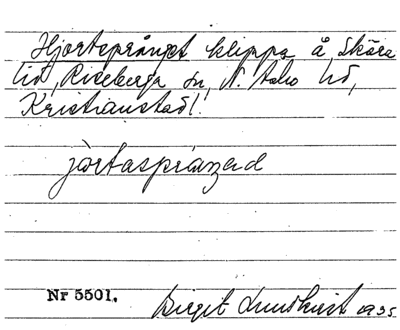 Hjortsprånget klippa å Skära
lid, Riseberga sn, N. Åsbo hd,
Kristianstad l.
jòrtaspråŋəd
Nr 5501.
Birgit Lundkvist 1935